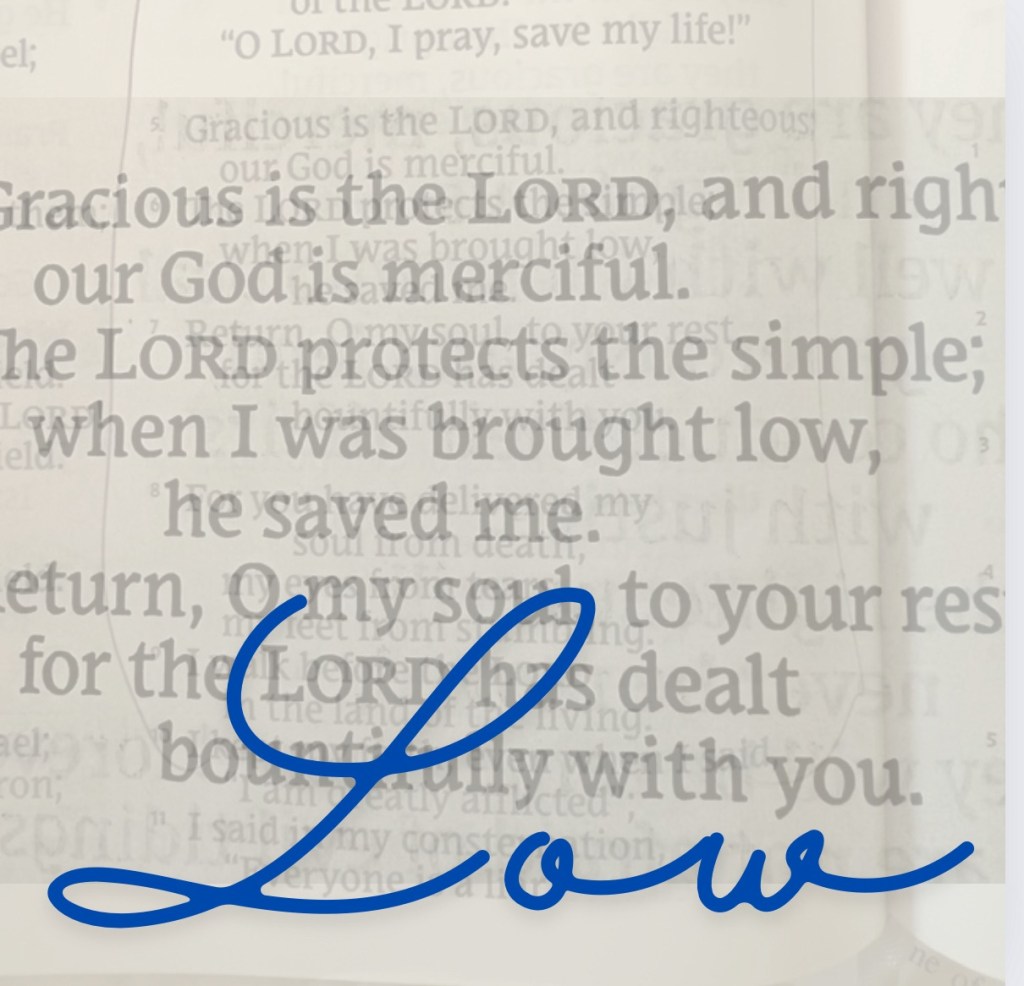 of the LORD:
“O LORD, I pray, save my life!”
el;
5 Gracious is the LORD, and righteous;
our God is merciful.
Gracious is the LORD, and righ
The LORD protects the simple;
when I was brought low,
our God is merciful.
he saved me.
7 Return, O my soul, to your rest
he LORD protects the simple;
for the LORD has dealt
LORD
bountifully with you.
when I was brought low,
ield.
8 For you have delivered my
he saved me.
soul from death,
eturn, O my soul, to your res
my feet from stumbling.
for the LORD has dealt
in the land of the living.
ael;
bountifully with you.
ron;
I am greatly afflicted”;
11 I said in my consternation,
“Everyone is a liar
Low
ne of